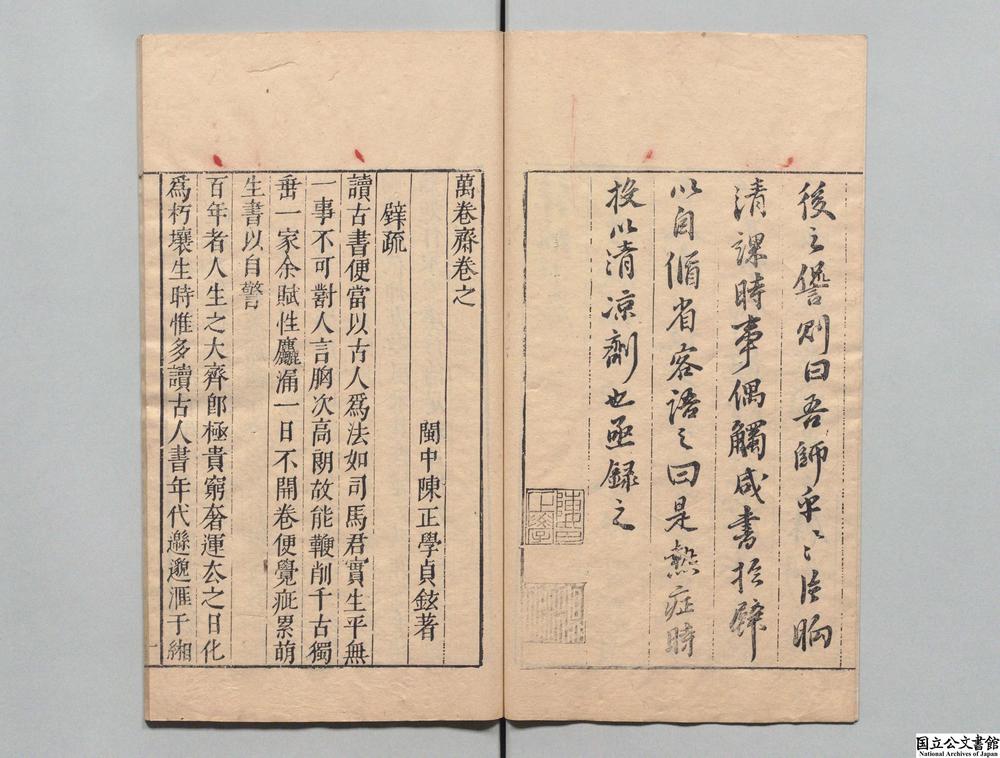 後之讐則曰吾師乎〻佳晌
清課時事偶觸咸書於壁
以自脩省客語之曰是熱症時
投以清凉劑也亟録之
萬卷齋卷之
閩中陳正學貞鉉著
壁疏
讀古書便當以古人爲法如司馬君實生平無
一事不可對人言胸次高朗故能鞭削千古獨
垂一家余賦性麤漏一日不開卷便覺疵累萌
生書以自警
百年者人生之大齊卽極貴窮奢運厺之日化
爲朽壤生時惟多讀古人書年代遙邈滙于緗
一
国立公文書館
National Archives of Japan